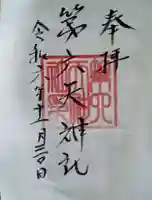 奉拝
第六天神社
令和六年十一月三日